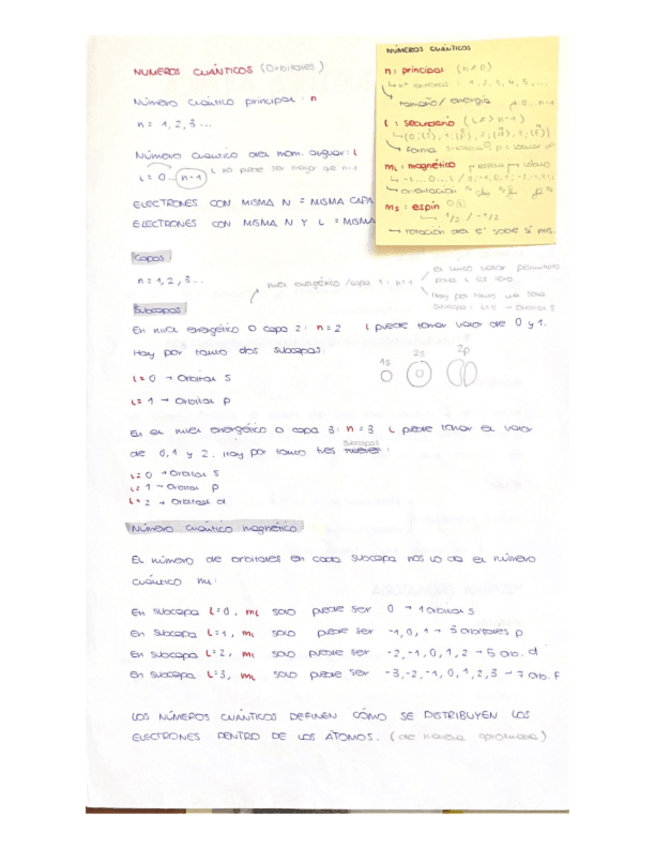 NÚMEROS CUÁNTICOS (Orbitales)
Número cuántico principal: n
n = 1, 2, 3...
Número cuántico del mom. angular: l
l = 0... n-1 l no puede ser mayor que n-1
ELECTRONES CON MISMA N = MISMA CAPA
ELECTRONES CON MISMA N Y L = MISMA
NÚMEROS CUÁNTICOS
n: principal (n≠0)
1, 2, 3, 4, 5, ...
tamaño/energía 0...n-1
l: secundario
forma
ml: magnético
orientación
ms: espín
1/2 / -1/2
rotación del e- sobre sí mis.
Capas
n = 1, 2, 3...
nivel energético /capa 1: n=1
Hay por tanto una sola
Subcapas
En nivel energético o capa 2: n=2 l puede tomar valor de 0 y 1.
Hay por tanto dos subcapas:
l=0 → Orbital s
l=1 → Orbital p
1s 2s 2p
En el nivel energético o capa 3: n=3 l puede tomar el valor
de 0, 1 y 2. Hay por tanto tres subcapas:
l=0 → Orbital s
l=1 → Orbital p
l=2 → Orbital d
Número cuántico magnético
El número de orbitales en cada subcapa nos lo da el número
cuántico ml:
En subcapa l=0, ml solo puede ser 0 → 1 orbital s
En subcapa l=1, ml solo puede ser -1, 0, 1 → 3 orbitales p
En subcapa l=2, ml solo puede ser -2, -1, 0, 1, 2 → 5 orb. d
En subcapa l=3, ml solo puede ser -3, -2, -1, 0, 1, 2, 3 → 7 orb. f
LOS NÚMEROS CUÁNTICOS DEFINEN CÓMO SE DISTRIBUYEN LOS
ELECTRONES DENTRO DE LOS ÁTOMOS. (de manera aproximada)